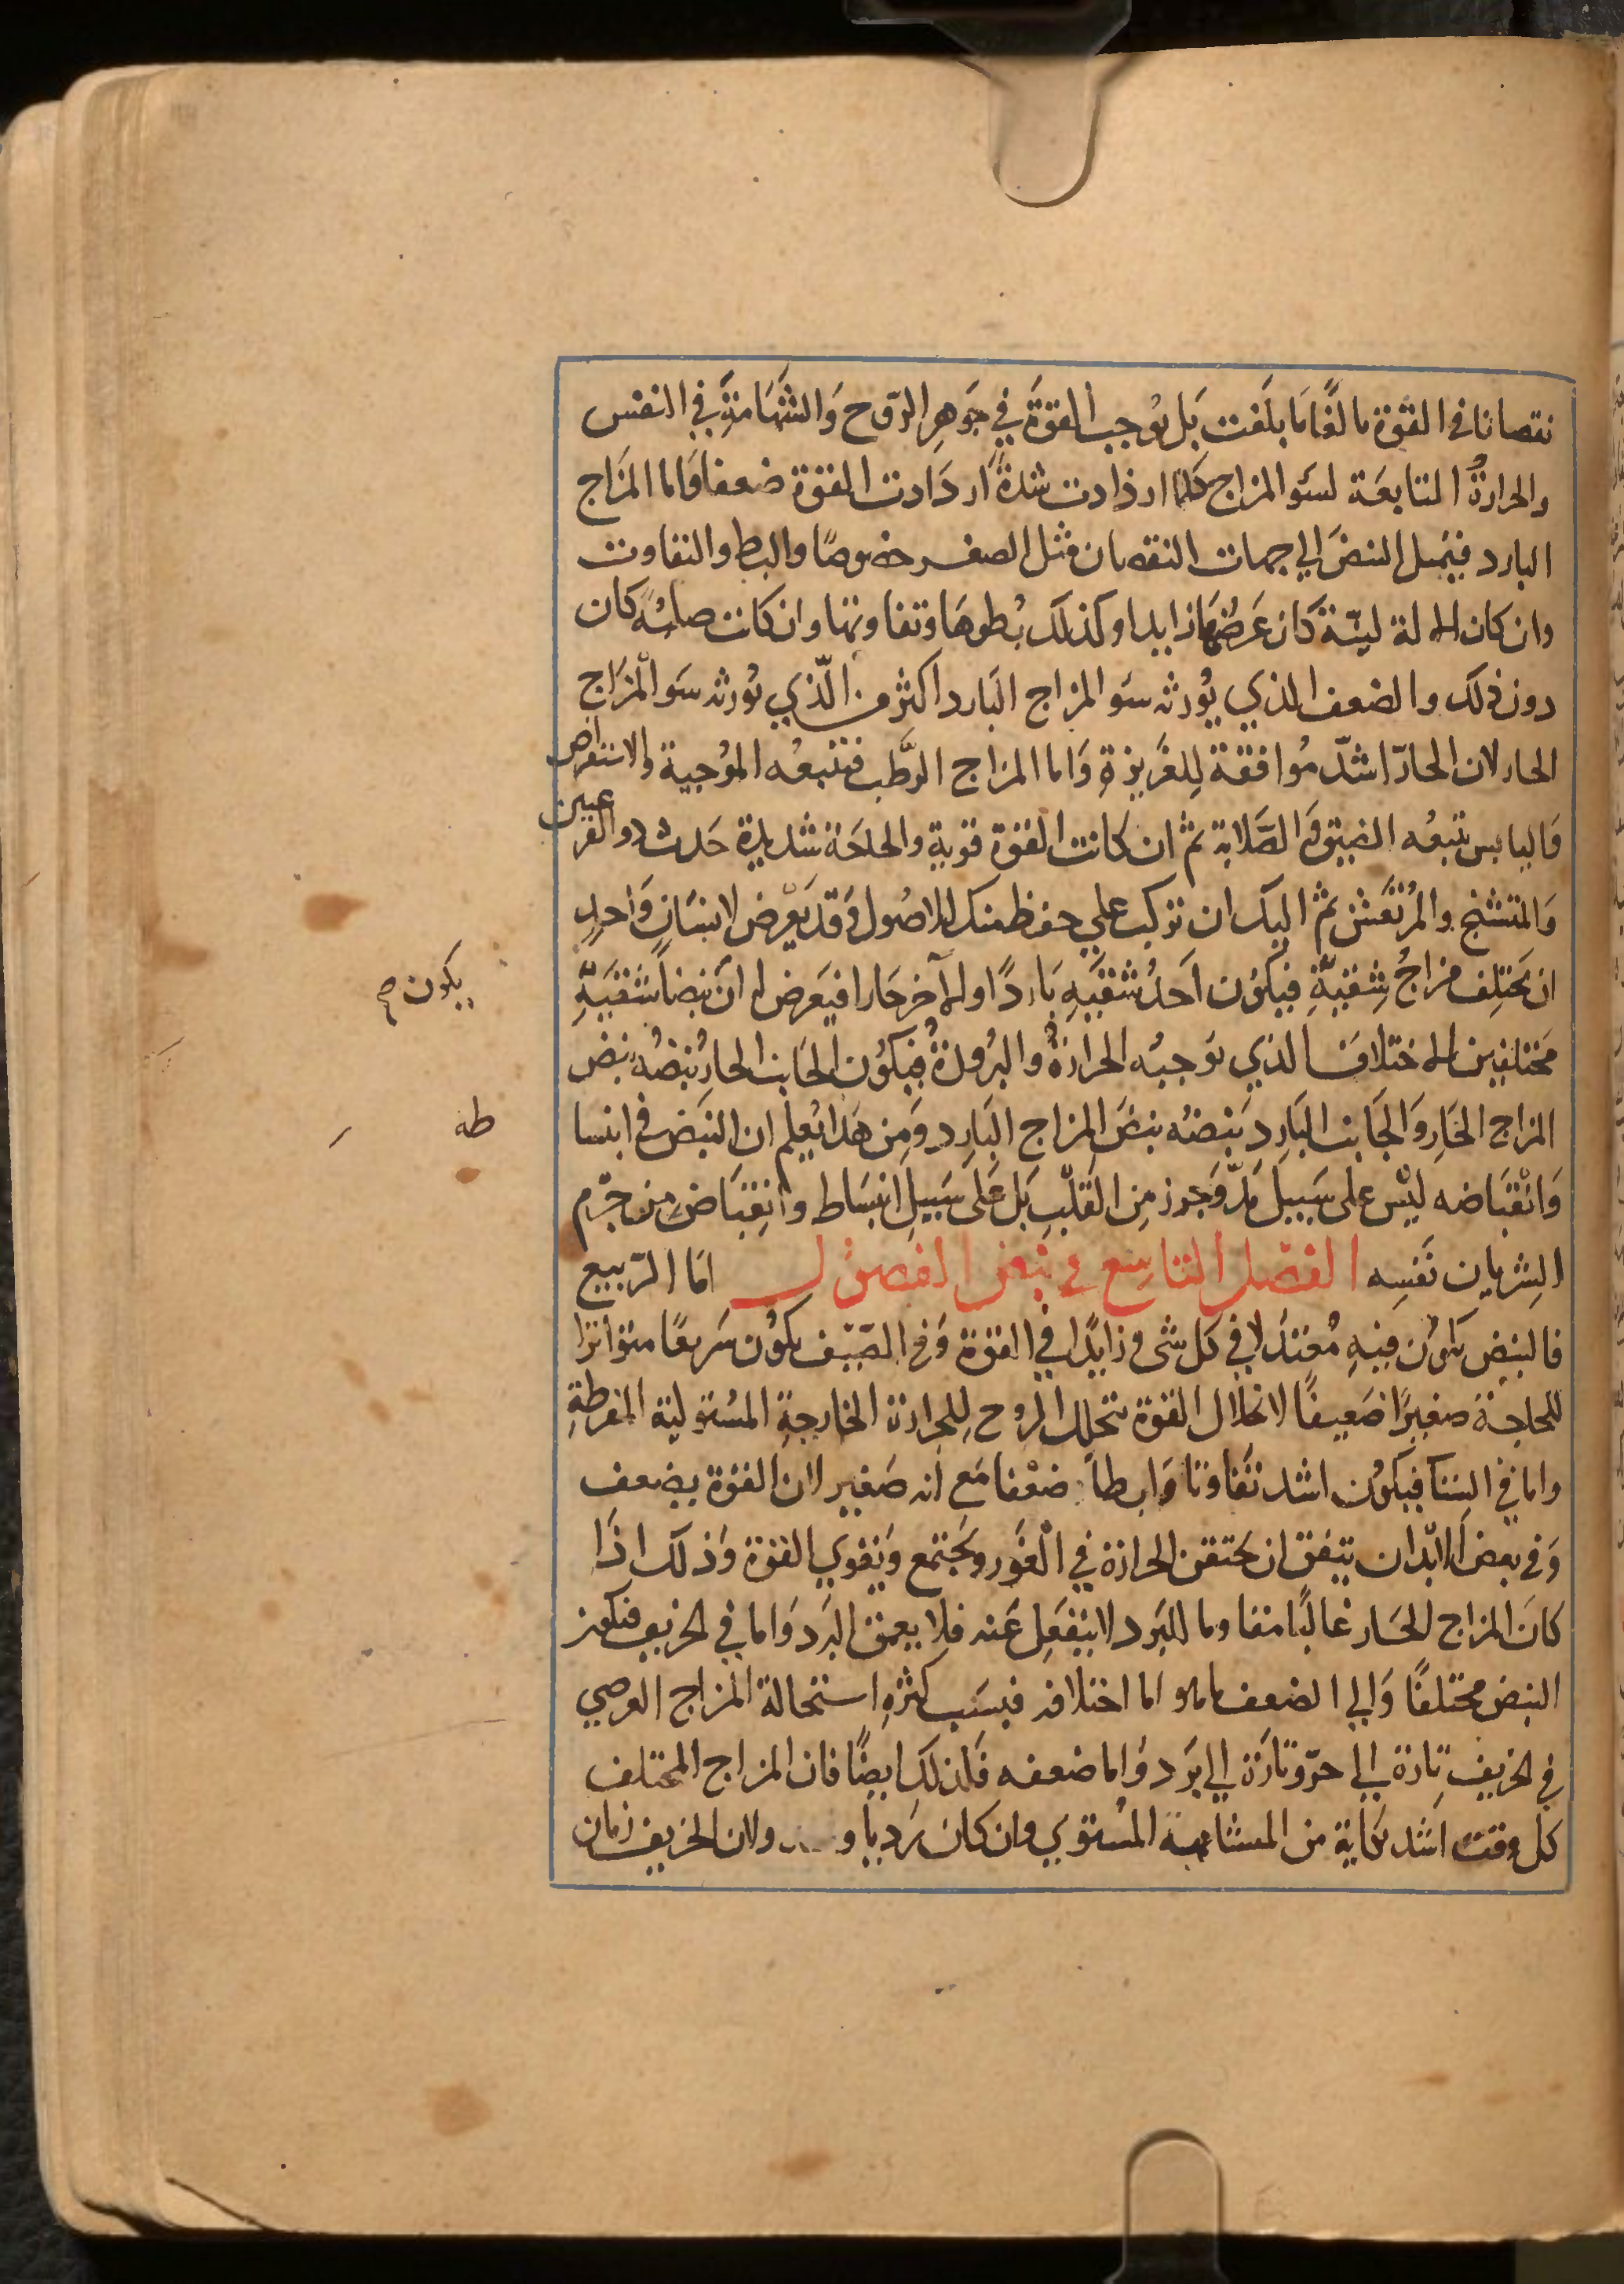 نقصانا في القوة بالغًا مَا بلَغت بَل يُوجب القوَّة في جَوهِر الرّوح وَالشّهَامَةِ في النفس
والحرارةُ التابعَة لسَو المزاج كلما ازدادت شدةً ازدَادت القوة ضعفا وَاما المزَاج
البارد فيَميل النبض الي جهات النقصان مثل الصغر خصوصًا والبطو والتفاوت
وان كان الالة لينّة كَان عَرضُهَا زايدا وكذلك بُطوهَا وتفاوتها وان كانت صلبُه كان
دون ذلك والضعف الذي يُورثه سَو المزاج البَارد اكثر من الّذي يُورثه سَو المزَاج
الحار لان الحارّ اشدّ مُوافقة لِلغَريزةِ وَاما المزاج الرَّطب فتتبعُه الموُجية والاستعراض
وَاليابس يتبعُه الضيق وَالصَّلابة ثم ان كانت القوة قوية والحاجَة شديدة حَدث ذو القرعين
وَالمتشنج والمُرْتعَش ثم اليك ان تركب علي حفظ منك للاصُول وَقد يَعْرض لانسَانٍ وَاحدٍ
ان يَختلِف مزاجُ شِقيّهِ فيكوُن احَدُ شقيَهِ بَاردًا والاخر حَارا فيَعرض له اَن نبضا شقيَهِّ
يكون ص
مختلفين الاختلاف الذي توجبُه الحرارةُ والبُرودةُ فيكوُن الجَانب الحارُ نبضُه نبض
المزاج الحَارِ وَالجَانب البَارِد نبضُه نبضَ المزاج البَارِد وَمِن هَذا يُعلم ان النبَض في انبسا
طه
وَانْقبَاضه ليْس على سَبيل مَدّ وَجزر مِن القَلْبِ بَل عَلى سَبيل انبسَاط وَانقِبَاض من جرْم
الشِريان نفسِه الفصْل التاسِع في نبض الفصول امَا الرّبيع
فالنبض يكوُن فيهِ مُعتدَلا في كل شي وزايدًا في القوة وَفي الصّيْف يكوُن سَريعًا متواترًا
للحاجة صغيرًا ضَعيفًا لانحلال القوة بتحلل الروح لِلحرارة الخارجةِ المسُتوليَة المفرطةِ
واما في الشتا فيكوُن اشد تفَاوتا وَابطا ضعْفا مَع انه صَغير لان القوة يضعف
وَفي بعض الابْدان يتفق ان يحتقن الحرارة في الغَور ويجَتمع وَيقوي القوة وَذلك اذَا
كانَ المزاج الحَار غالبًا مقاوما للبَرد لا ينفَعِل عَنه فلا يعمق البَرد وَاما في الخريف فيكون
النبض مختلفًا وَالي الضعف ماهو اما اختلافه فبسَبب كثرةِ استحالة المزاج العرضي
في الخريف تارة الي حرّ وتارَة الي بَرد وَاما ضعفه فلذلكَ ايضًا فان المزاج المختلف
كل وقت اشد نكاية من المتشابهة المسُتوي وان كان رَديا و ولان الخريف زمان